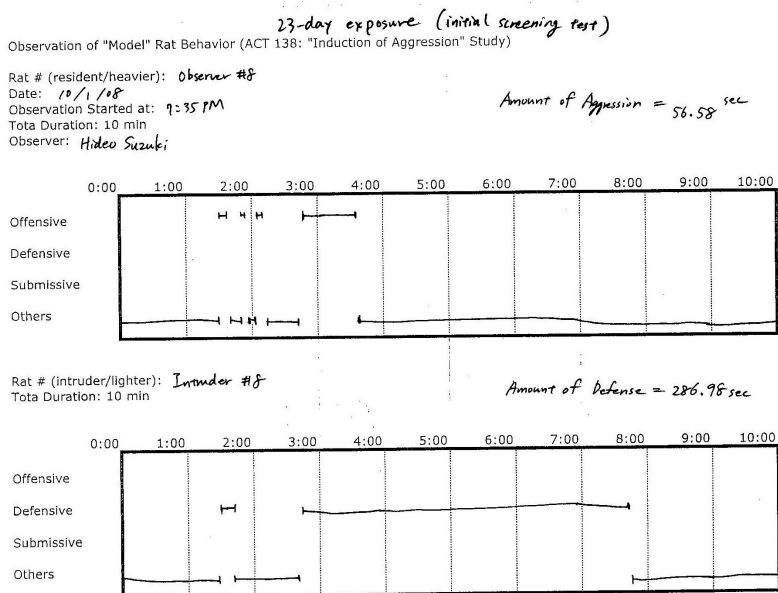 23-day exposure (initial screening test)
Observation of "Model" Rat Behavior (ACT 138: "Induction of Aggression" Study)
Rat # (resident/heavier): Observer #8
Date: 10/1/08
Observation Started at: 7:35 PM
Tota Duration: 10 min
Observer: Hideo Suzuki
Amount of Aggression = 56.58 sec
0:00 1:00 2:00 3:00 4:00 5:00 6:00 7:00 8:00 9:00 10:00
Offensive
Defensive
Submissive
Others
Rat # (intruder/lighter): Intruder #8
Tota Duration: 10 min
Amount of Defense = 286.98 sec
0:00 1:00 2:00 3:00 4:00 5:00 6:00 7:00 8:00 9:00 10:00
Offensive
Defensive
Submissive
Others